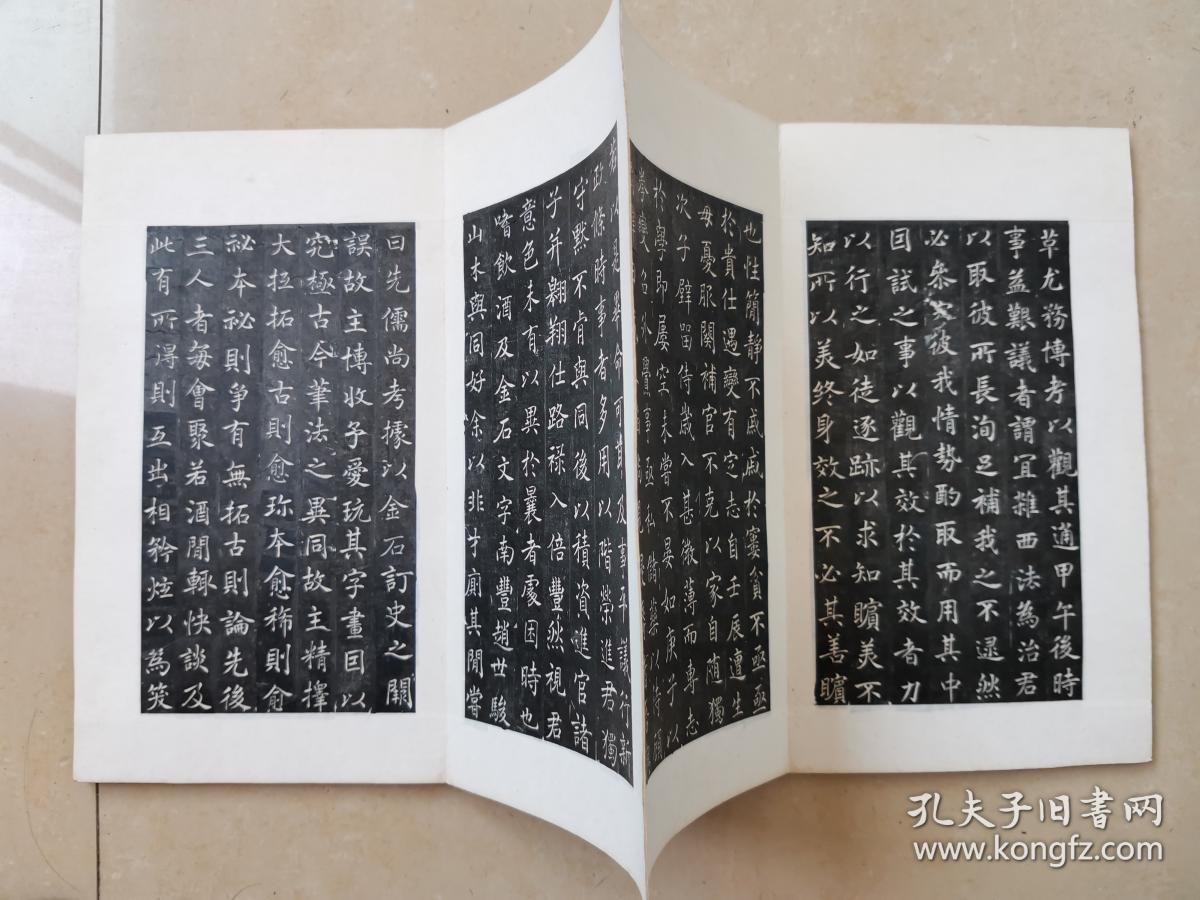 草尤務博考以觀其通甲午後時
事益艱議者謂宜雜西法為治君
以取彼所長洵足補我之不逮然
必參究彼我情勢酌取而用其中
囙試之事以觀其效於其效者力
以行之如徒逐跡以求知矉美不
知所以美終身效之不必其善矉
也性簡靜不戚戚於寠貧不亟亟
於貴仕遇變有定志自壬辰遭生
母憂服闋補官不克以家自随獨
次子壁畱侍歲入甚微薄而專志
於學即屢空未嘗不晏如庚子以
拳變名外事亟私
若以是畢命可哿及事平議行新
政條時事者多用以階榮進君獨
守默不肯與同後以積資進官諸
子并翺翔仕路祿入倍豐然視君
意色未有以異於曩者處困時也
嗜飲酒及金石文字南豐趙世駿
山木與同好余以非才廁其閒嘗
曰先儒尚考據以金石訂史之闕
誤故主博收予愛玩其字畫囙以
究極古今筆法之異同故主精擇
大抵拓愈古則愈珎本愈稀則愈
祕本祕則爭有無拓古則論先後
三人者每會聚若酒閒輙快談及
此有所得則互出相矜炫以為笑
孔夫子旧书网
www.kongfz.com